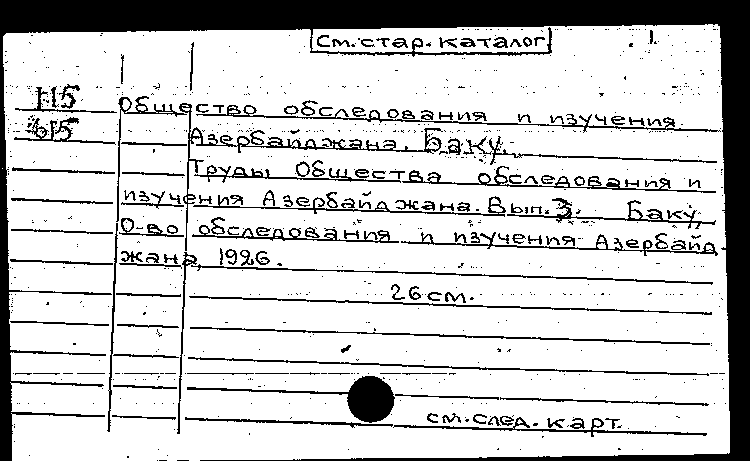 см. стар. каталог 1.
115 Общество обследования и изучения
615 Азербайджана. Баку.
Труды Общества обследования и
изучения Азербайджана. Вып. 3. Баку,
О-во обследования и изучения Азербайд-
жана, 1926.
26 см.
см. след. карт.